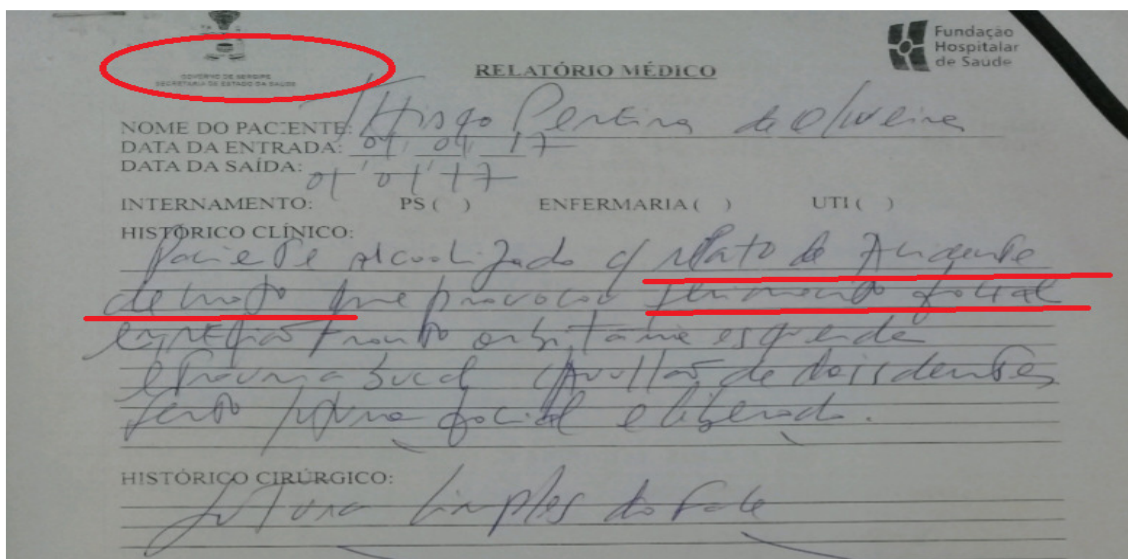 GOVERNO DE SERGIPE
SECRETARIA DE ESTADO DA SAÚDE
Fundação
Hospitalar
de Saúde
RELATÓRIO MÉDICO
NOME DO PACIENTE: Thiago Pereira de Oliveira
DATA DA ENTRADA: 01/01/17
DATA DA SAÍDA: 01/01/17
INTERNAMENTO: PS ( ) ENFERMARIA ( ) UTI ( )
HISTÓRICO CLÍNICO:
Paciente alcoolizado c/ relato de Acidente
de moto que provocou ferimento facial
em região fronto orbitária esquerda
e trauma bucal c/ avulsão de dois dentes
feito sutura facial e liberado.
HISTÓRICO CIRÚRGICO:
Sutura simples da face